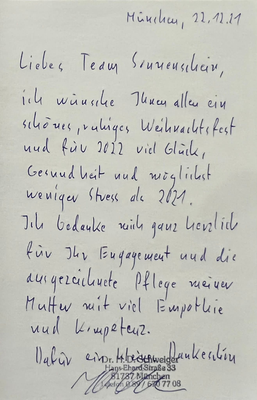 München, 22.12.21
Liebes Team Sonnenschein,
ich wünsche Ihnen allen ein
schönes, ruhiges Weihnachtsfest
und für 2022 viel Glück,
Gesundheit und möglichst
weniger Stress als 2021.
Ich bedanke mich ganz herzlich
für Ihr Engagement und die
ausgezeichnete Pflege meiner
Mutter mit viel Empathie
und Kompetenz.
Dafür ein kleines Dankeschön
Schweiger
Hans-Ehard-Straße 33
81737 München
670 77 08